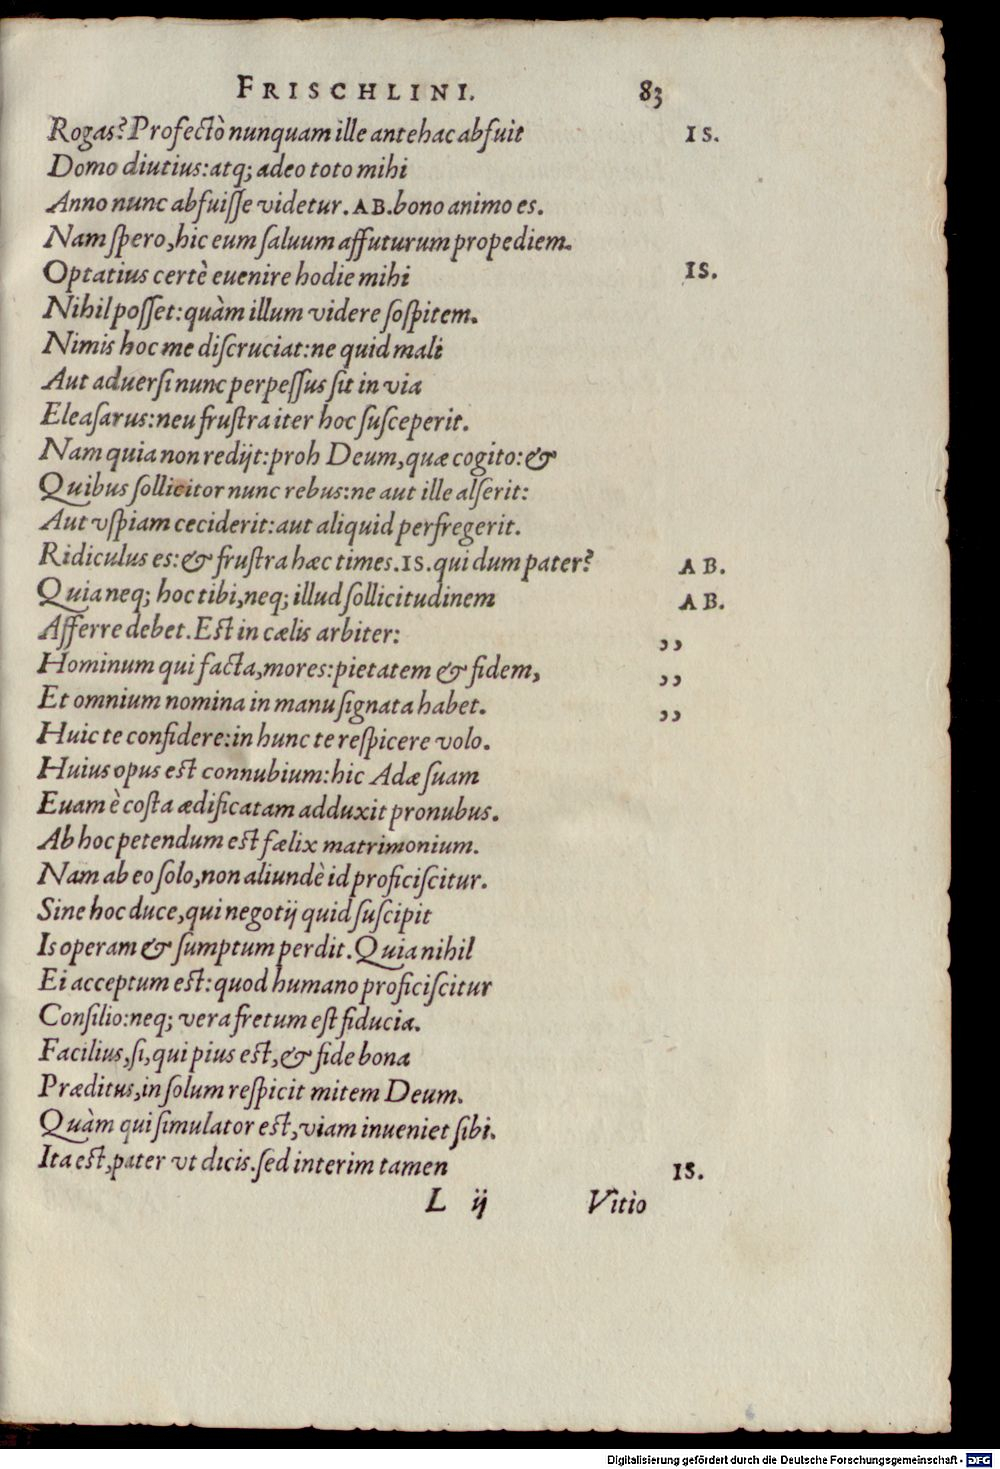 FRISCHLINI. 83
Rogas? Profectò nunquam ille antehac abſuit IS.
Domo diutius: atq; adeo toto mihi
Anno nunc abfuiſſe videtur. AB. bono animo es.
Nam ſpero, hic eum ſaluum affuturum propediem.
Optatius certè euenire hodie mihi IS.
Nihil poſſet: quàm illum videre ſoſpitem.
Nimis hoc me diſcruciat: ne quid mali
Aut aduerſi nunc perpeſſus ſit in via
Eleaſarus: neu fruſtra iter hoc ſuſceperit.
Nam quia non redijt: proh Deum, quæ cogito: &
Quibus ſollicitor nunc rebus: ne aut ille alſerit:
Aut vſpiam ceciderit: aut aliquid perfregerit.
Ridiculus es: & fruſtra hæc times. IS. qui dum pater? AB.
Quia neq; hoc tibi, neq; illud ſollicitudinem AB.
Afferre debet. Eſt in cælis arbiter: ,,
Hominum qui facta, mores: pietatem & fidem, ,,
Et omnium nomina in manu ſignata habet. ,,
Huic te confidere: in hunc te reſpicere volo.
Huius opus eſt connubium: hic Adæ ſuam
Euam è coſta ædificatam adduxit pronubus.
Ab hoc petendum eſt fælix matrimonium.
Nam ab eo ſolo, non aliundè id proficiſcitur.
Sine hoc duce, qui negotij quid ſuſcipit
Is operam & ſumptum perdit. Quia nihil
Ei acceptum eſt: quod humano proficiſcitur
Conſilio: neq; vera fretum eſt fiducia.
Facilius, ſi, qui pius eſt, & fide bona
Præditus, in ſolum reſpicit mitem Deum.
Quàm qui ſimulator eſt, viam inueniet ſibi.
Ita eſt, pater vt dicis. ſed interim tamen IS.
L ij Vitio
Digitalisierung gefördert durch die Deutsche Forschungsgemeinschaft - DFG